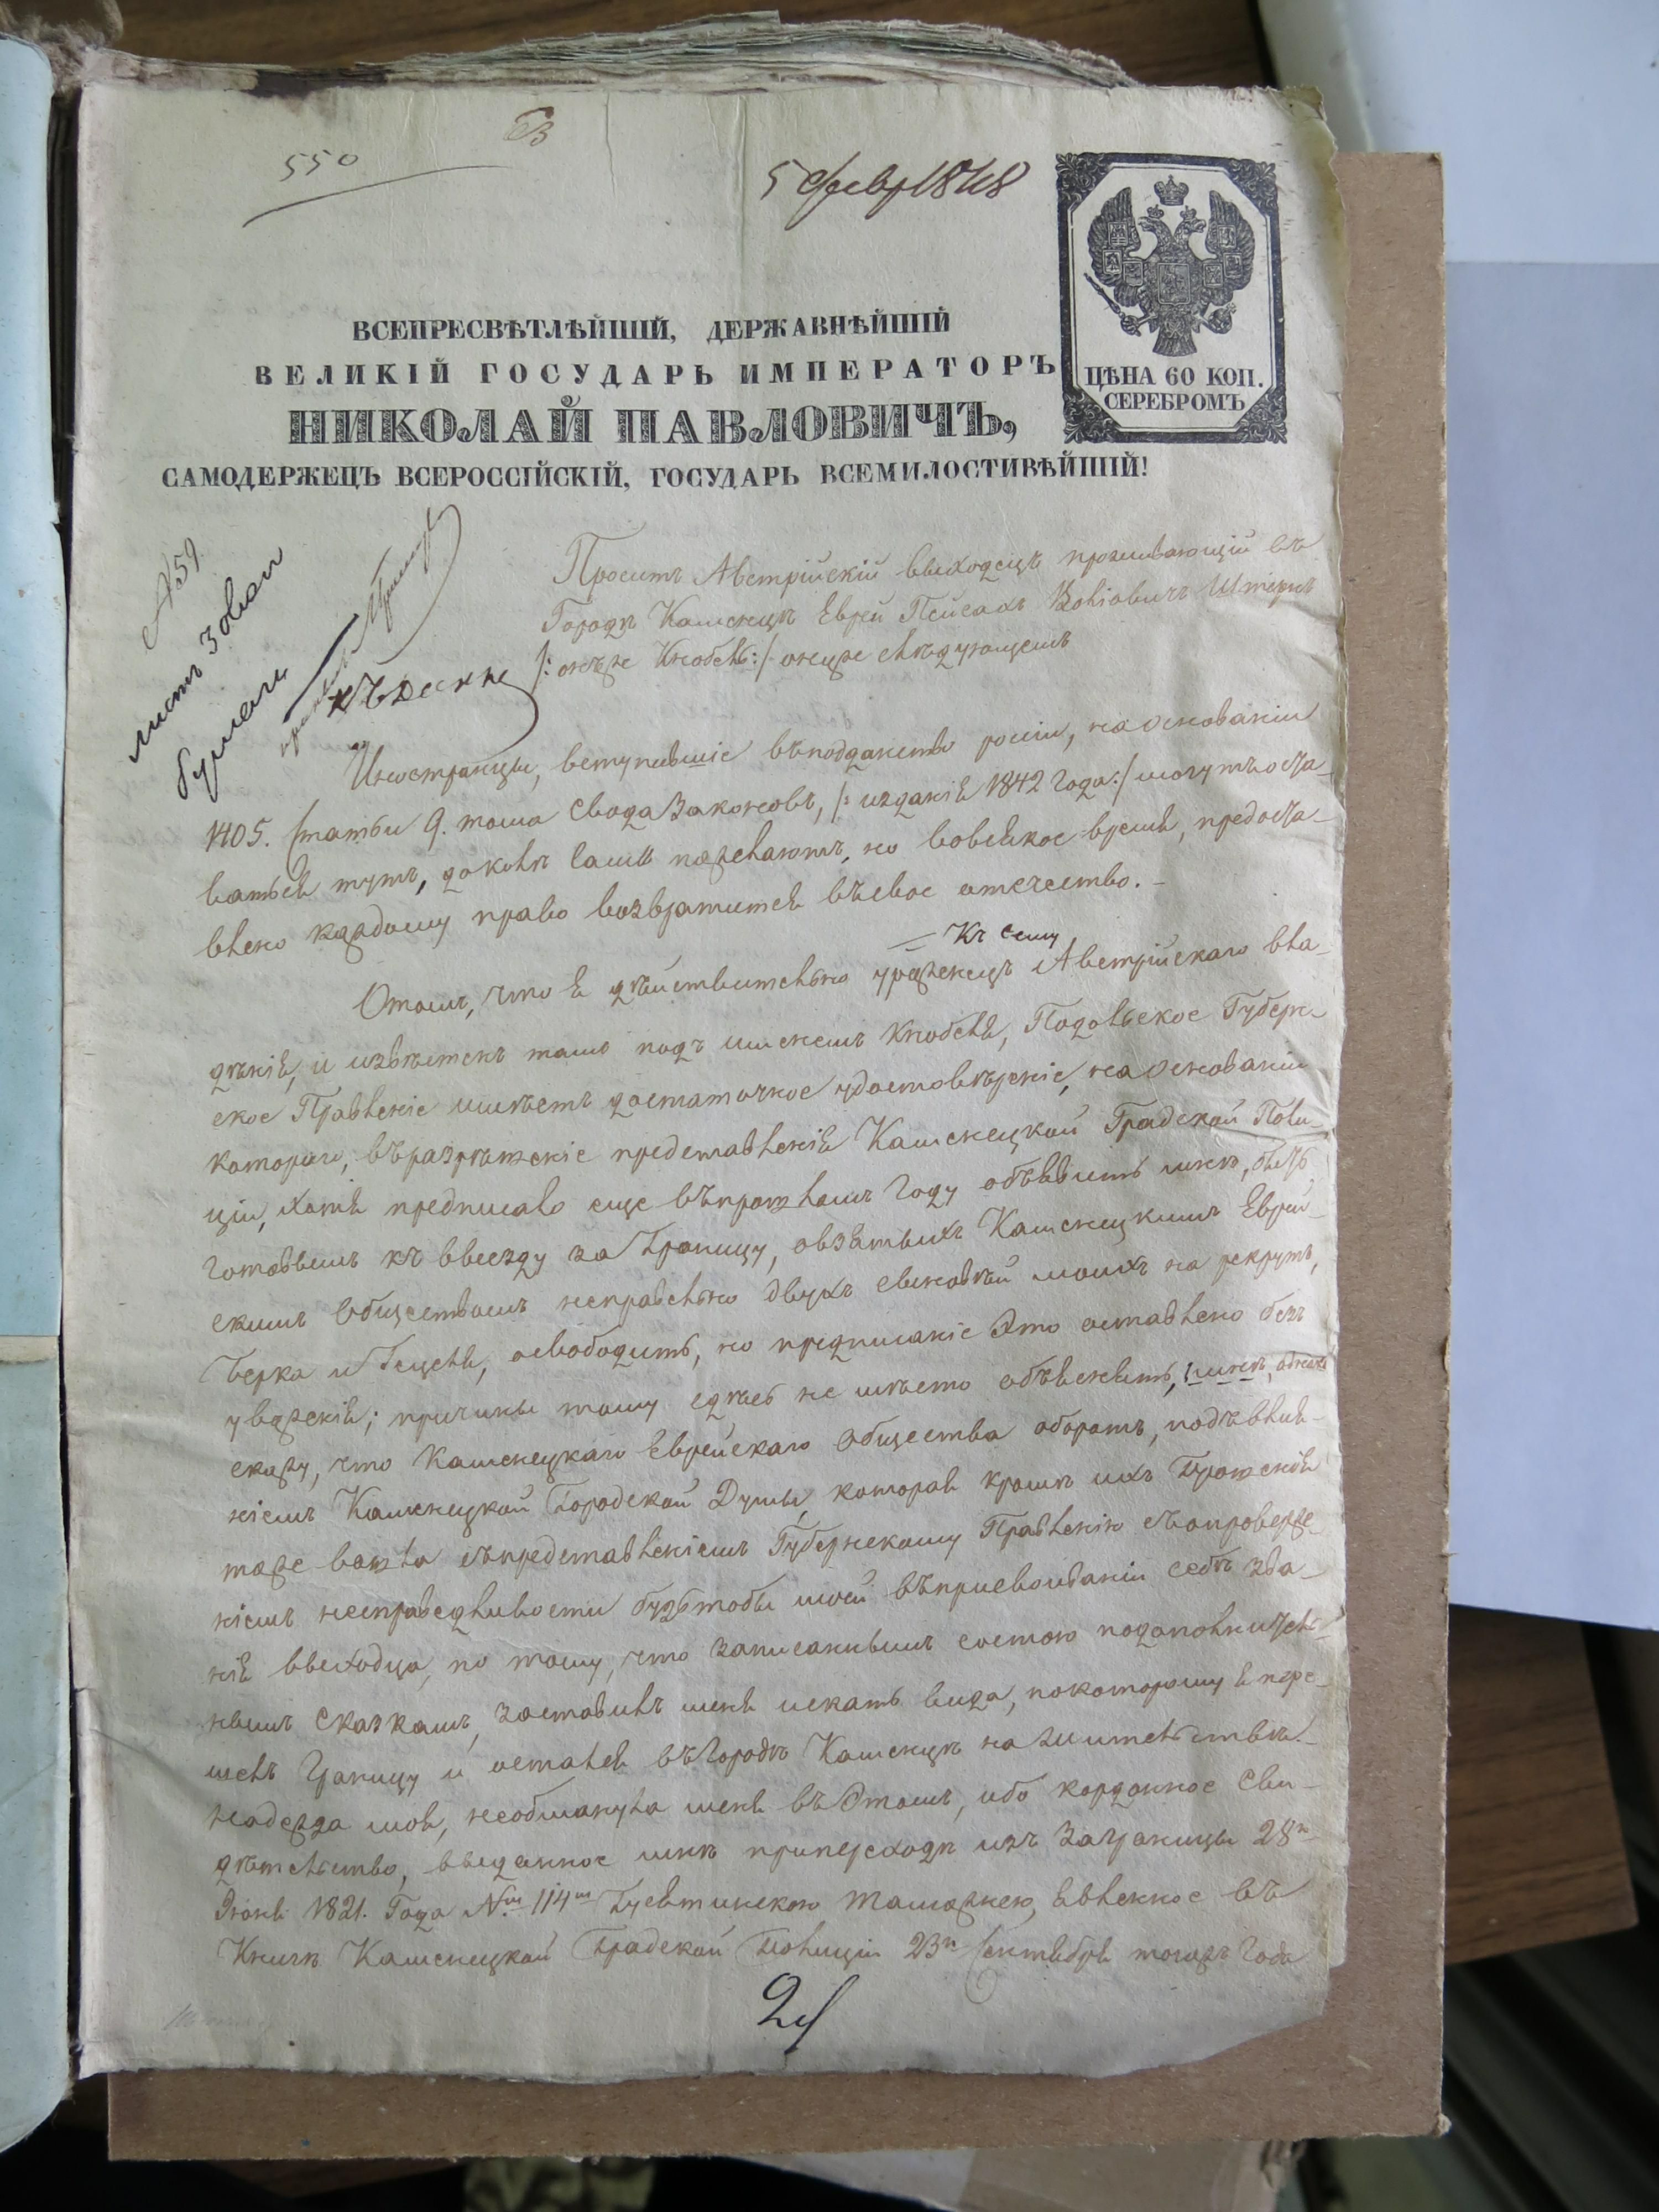 550
5 Февр 1848
ЦѢНА 60 КОП.
СЕРЕБРОМЪ
ВСЕПРЕСВѢТЛѢЙШІЙ, ДЕРЖАВНѢЙШІЙ
ВЕЛИКІЙ ГОСУДАРЬ ИМПЕРАТОРЪ
НИКОЛАЙ ПАВЛОВИЧЪ,
САМОДЕРЖЕЦЪ ВСЕРОССІЙСКІЙ, ГОСУДАРЬ ВСЕМИЛОСТИВѢЙШІЙ!
листъ
бумаги
Проситъ Австрійскій выходецъ проживающій въ
Городѣ Каменцѣ Еврей Пейсахъ Штернъ
/: онъже Кнобель :/ онцже слѣдующемъ
Иностранцы, вступившіе въподданство росіи, на основаніи
1405. статьи 9. тома Свода Законовъ, /: изданія 1842 года :/ могутъ оста-
ваться тутъ, доколѣ сами пожелаютъ, но вовсякое время, предоста-
влено каждому право возвратится въсвое отечество. -
Къ сему
Отомъ, что я дѣйствительно уроженецъ Австрійскаго вла-
дѣнія, и извѣстенъ тамъ подъ именемъ Кнобеля, Подольское Губерн-
ское Правленіе имѣетъ достаточное удостовѣреніе, на основаніи
котораго, въразрѣшеніе представленія Каменецкой Градской Поли-
ціи, хотя предписало еще въпрошломъ году объявить мнѣ, быть
готовымъ къ выезду за Границу, авзятыхъ Каменецкимъ Еврей-
скимъ Обществомъ неправельно двухъ сыновѣй моихъ на рекрутъ,
Берка и Гецеля, освободить, но предписаніе Это оставлено безъ
уваженія; причины тому здѣсь не мѣсто объяснять,
скажу, что Каменецкаго Еврейскаго Общества оборотъ, подъвлия-
ніемъ Каменецкой Городской Думы, которая кромѣ ихъ Прошенія
таже вошла съпредставленіемъ Губернскому Правленію съопроверже-
ніемъ несправедливости будьтобы моей въприсвоиваніи себѣ зва-
нія выходца, по тому, что записаннымъ состою податолкитель-
нымъ Сказкамъ, заставилъ меня искать вида, покоторому я пере-
шелъ Границу и остался въГородѣ Каменцѣ на жительствѣ. -
Надежда моя, необманула меня въЭтомъ, ибо кордонное Сви-
дѣтельство, выданное мнѣ припереходѣ изъ Заграницы 28го
Іюня 1821. Года № 114м Гусятинскою Таможнею, явленное въ
Книгѣ Каменецкой Градской Полиціи 23го Сентября тогожъ Года